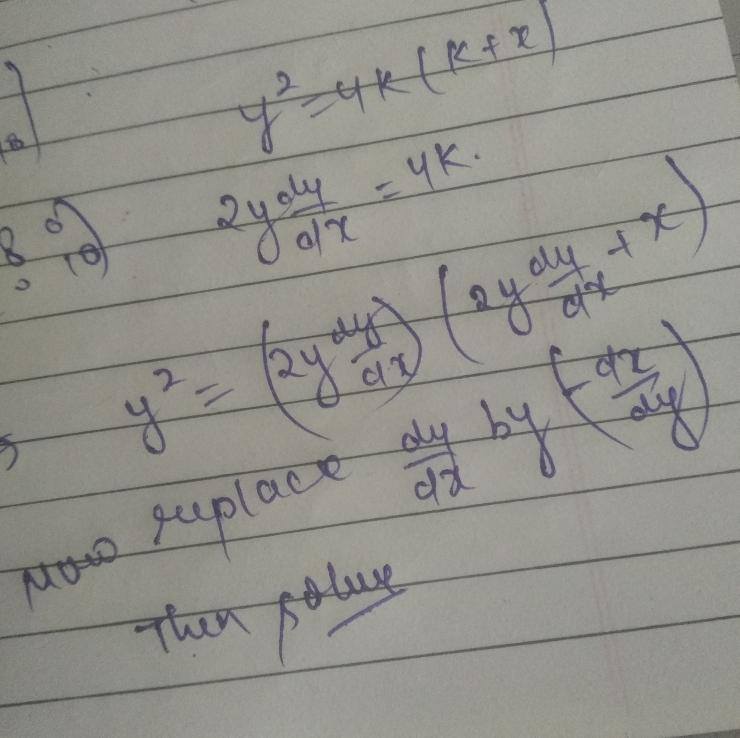 y² = 4k(k+x)
2y dy/dx = 4k.
y² = (2y dy/dx) (2y dy/dx + x)
Now replace dy/dx by (-dx/dy)
Then solve